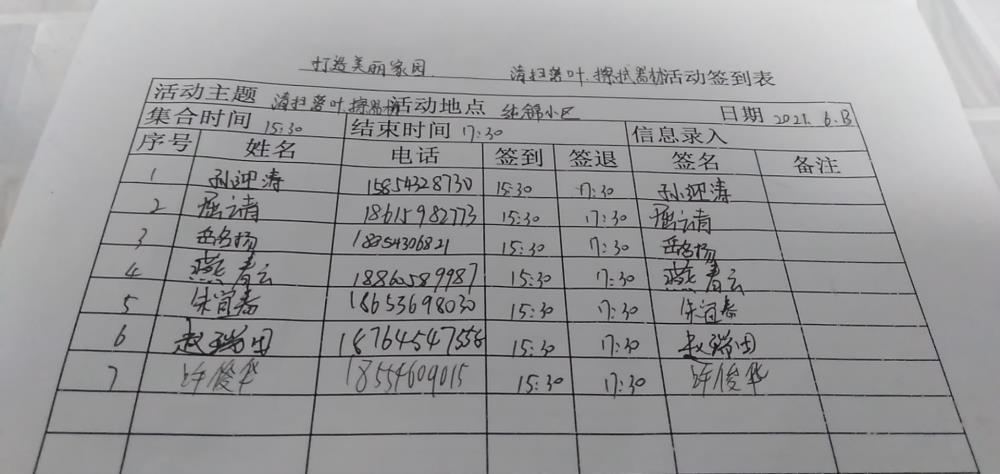 打造美丽家园 清扫落叶.擦拭器材活动签到表
活动主题 清扫落叶.擦器材 活动地点 纯锦小区 日期 2021.6.13
集合时间 15:30 结束时间 17:30 信息录入
序号 姓名 电话 签到 签退 签名 备注
1 孙迎涛 15854328730 15:30 17:30 孙迎涛
2 屈云清 18615982773 15:30 17:30 屈云清
3 岳名扬 18354306821 15:30 17:30 岳名扬
4 燕春云 18860589987 15:30 17:30 燕春云
5 朱宜春 18653698030 15:30 17:30 朱宜春
6 赵瑞田 18764547556 15:30 17:30 赵瑞田
7 许俊华 18554609015 15:30 17:30 许俊华